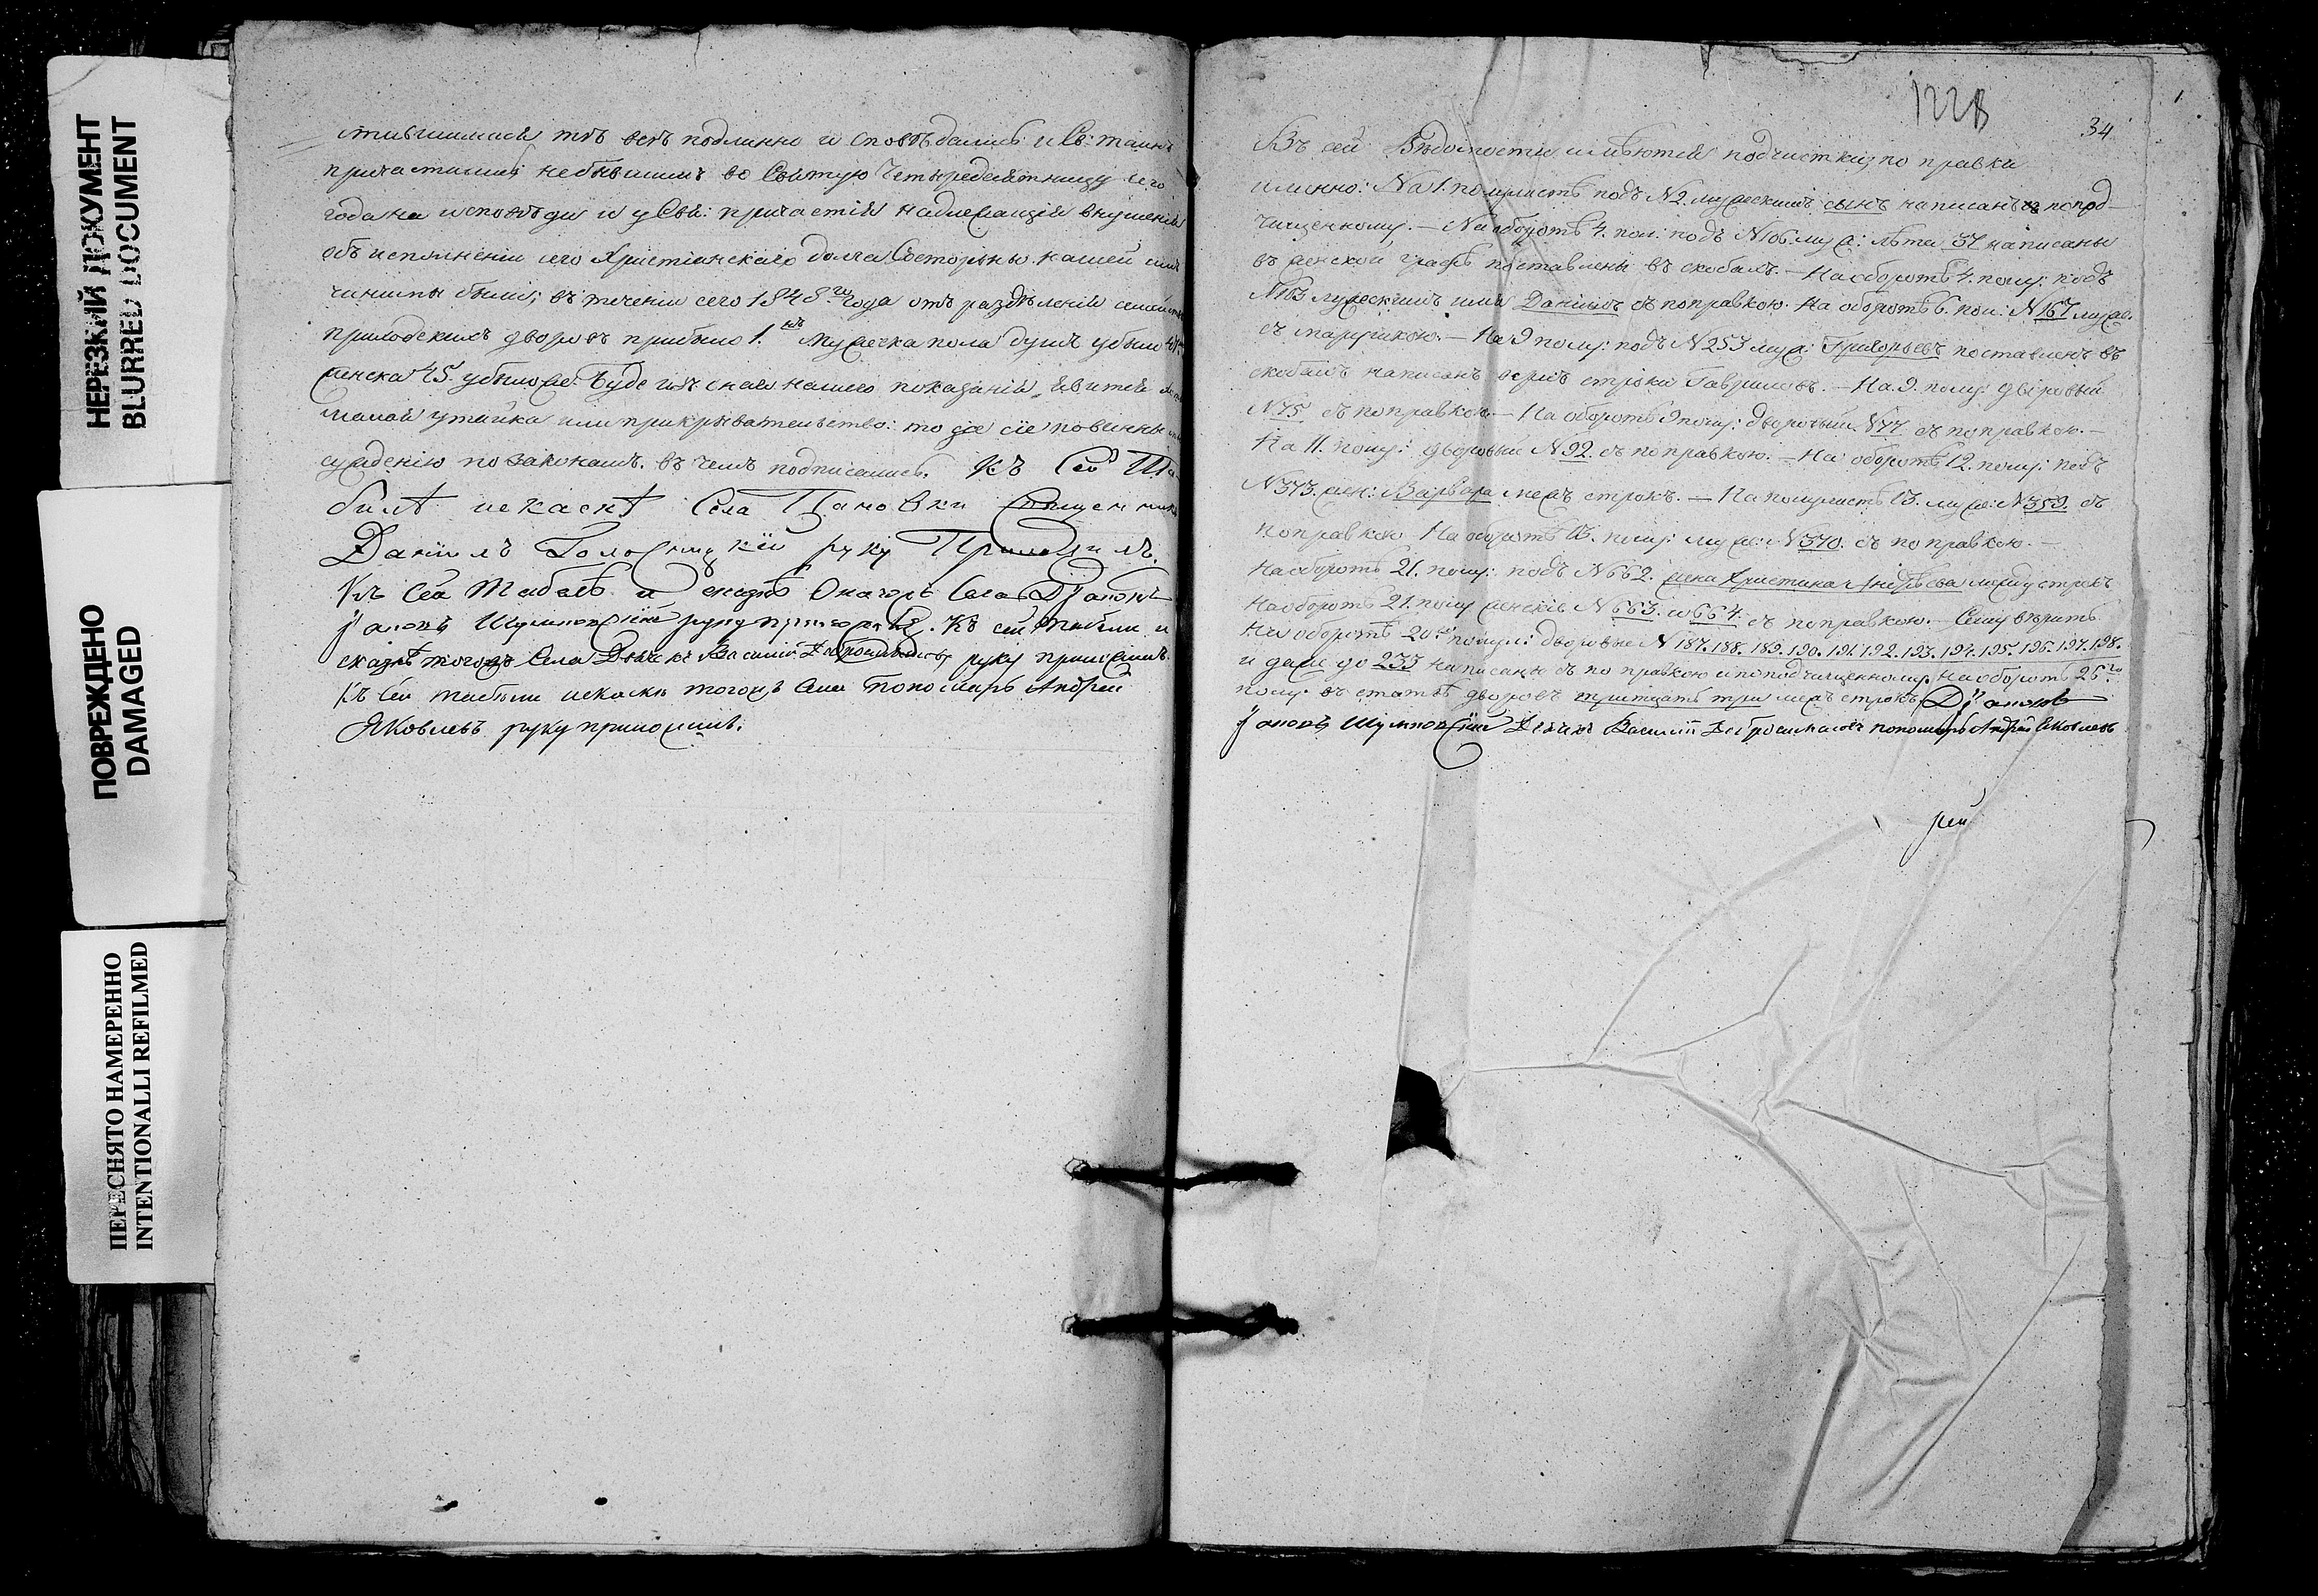 НЕРЕЗКИЙ ДОКУМЕНТ
BLURRED DOCUMENT
ПОВРЕЖДЕНО
DAMAGED
ПЕРЕСНЯТО НАМЕРЕННО
INTENTIONALLI REFILMED
тѣ всѣ подлинно исповѣдались и Св: таинъ
причастились; небывшимъ во Святую Четыредесятницу сего
года на исповѣди и у Свя: причастія надлежащія внушенія
объ исполненіи сего Христіанскаго долга, со стороны нашей
чинимы были; въ теченіи сего 1848го года отъ раздѣленія
приходскихъ дворовъ прибыло 1. мужеска пола душъ убыло
женска 45. убыло же. Буде изъ сего нашего показанія явится
малая утайка или прикрывательство: то за сіе повинны
сужденію по законамъ. въ чемъ подписались. Къ Сей Та-
билѣ искаскѣ Села Пановки Священникъ
Даніилъ руку Приложилъ.
Къ Сей Табелѣ и сказкѣ Онагожъ Села Дьяконъ
Іаковъ руку приложилъ. Къ сей табели и
сказкѣ тогожъ Села Дьячекъ Василій руку приложилъ.
Къ Сей табели искаски тогожъ Села Пономарь Андрей
Яковлевъ руку приложилъ.
122В
34
Въ сей Вѣдомости имѣются подчистки, по правки
именно: На 1. полулистѣ подъ №2. мужескимъ сынъ написанъ по под-
чищенному. — На оборотѣ 4. пол: подъ №106. муж: лѣта 37 написаны
въ женской графѣ поставлены въ скобахъ. — На оборотѣ 4. полу: подъ
№103 мужескимъ имя Даніилъ съ поправкою. На оборотѣ 6. пол: №167 муж.
съ — На 9 полу: подъ №253 муж: Григорьевъ поставленъ въ
скобахъ написанъ верхъ строки Гавриловъ. — На 9. полу: дворовый
№75 съ поправкою. — На оборотѣ 9 полу: дворовый №77 съ поправкою. —
На 11. полу: дворовый №92. съ поправкою. — На оборотѣ 12. полу: подъ
№373. жен: Варвара межъ строкъ. — На полулистѣ 13. муж: №359. съ
поправкою На оборотѣ 13. полу: муж: №370. съ поправкою. —
На оборотѣ 21. полу: подъ №662. жена Христина Андрѣева между строкъ
На оборотѣ 21. полу женскіе №663. и 664. съ поправкою. — Сему вѣрить
На оборотѣ 20го полул: дворовые № 187. 188. 189. 190. 191. 192. 193. 194. 195. 196. 197. 198.
и даже до 233 написаны съ поправкою и по подчищенному. На оборотѣ 26го
полу: въ статьѣ дворовъ тритцать три межъ строкъ. Дьяконъ
Іаковъ Дьячекъ Василій пономарь Андрей Яковлевъ